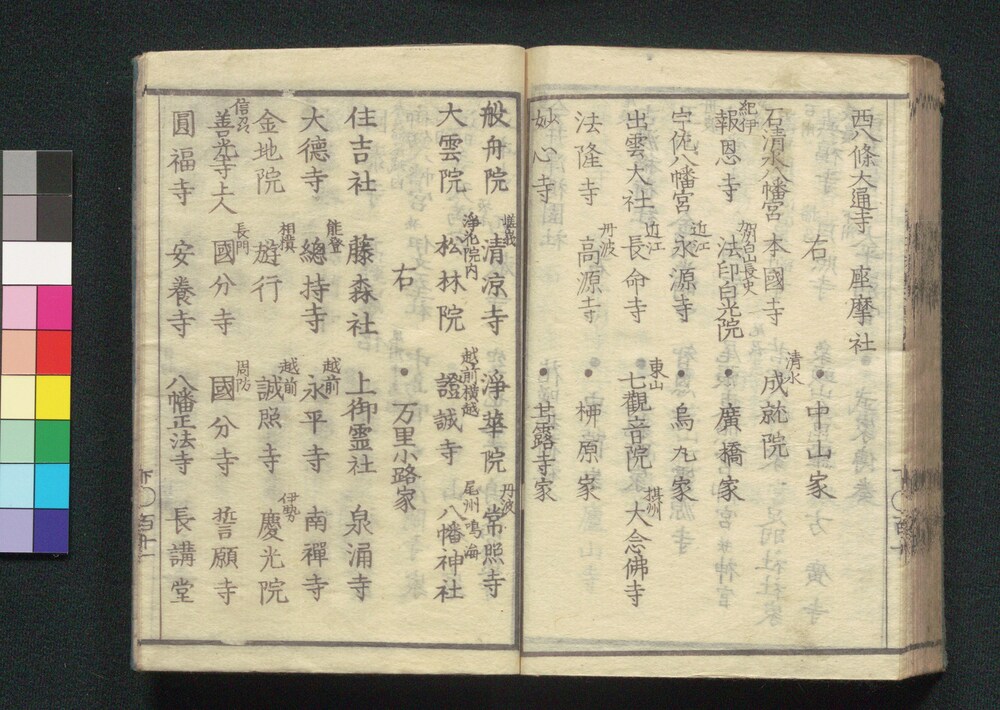 西八條大通寺　座摩社
右　・中山家
石清水八幡宮　本國寺　清水成就院
紀伊報恩寺　加州白山長吏法印白光院　・廣橋家
宇佐八幡宮　近江永源寺　・烏丸家
出雲大社　近江長命寺　・東山七觀音院　摂州大念佛寺
法隆寺　丹波高源寺　・柳原家
妙心寺　・甘露寺家
般舟院　嵯峨清凉寺　淨華院　丹波常照寺
大雲院　浄花院内松林院　越前横越證誠寺　尾州鳴海八幡神社
右　・万里小路家
住吉社　藤森社　上御霊社　泉涌寺
大德寺　能登總持寺　越前永平寺　南禪寺
金地院　相模遊行　越前誠照寺　伊勢慶光院
信州善光寺上人　長門國分寺　周防國分寺　誓願寺
圓福寺　安養寺　八幡正法寺　長講堂
百十
百十一